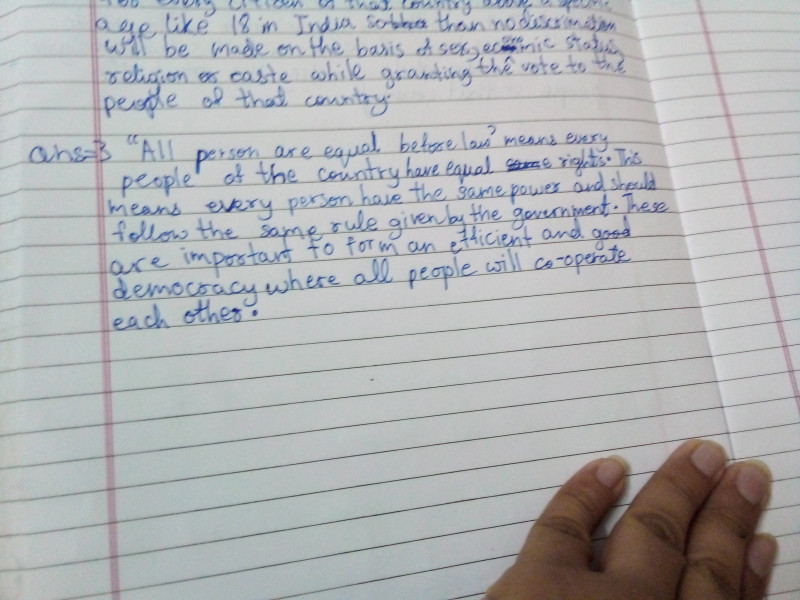 every citizen of that country above a specific
age like 18 in India rather than no discrimination
will be made on the basis of sex, economic status,
religion or caste while granting the vote to the
people of that country.
ans-3 "All person are equal before law" means every
people of the country have equal rights. This
means every person have the same power and should
follow the same rule given by the government. These
are important to form an efficient and good
democracy where all people will co-operate
each other.